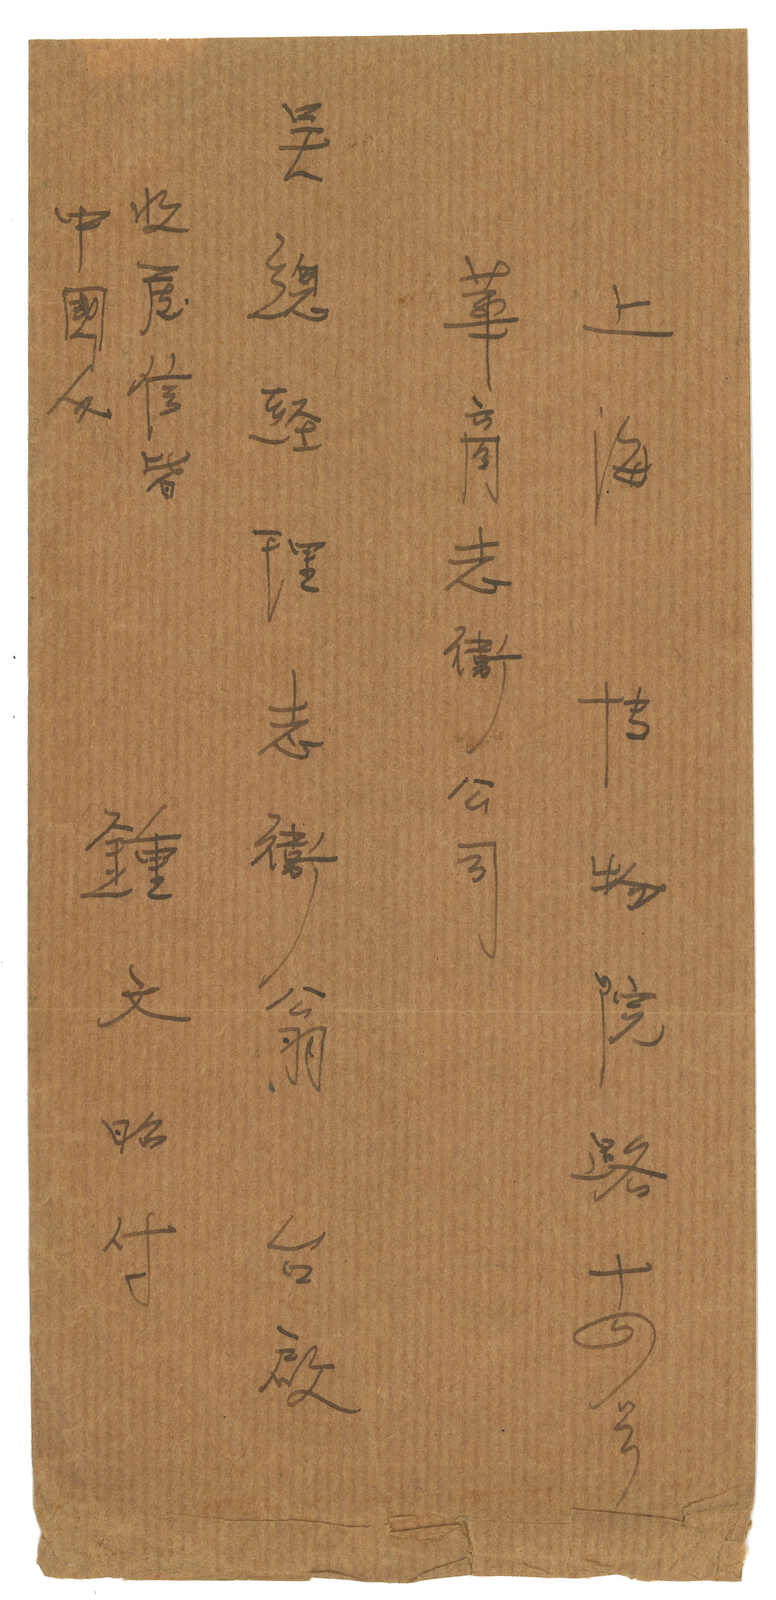 上海 博物院路十四号
華商志衛公司
吳總經理志衛翁 台啟
鍾文昭付
收 信皆
中國人